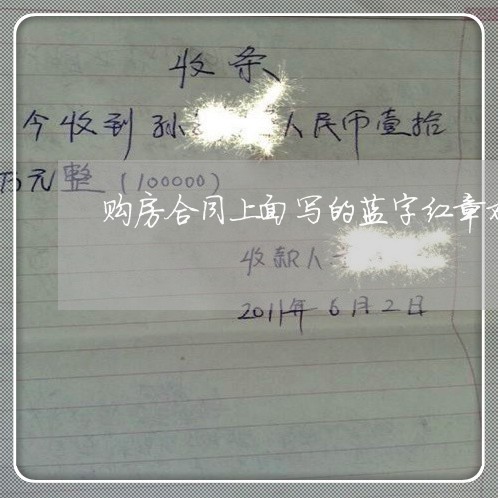 收条
今收到孙 人民币壹拾
万元整（100000）
购房合同上面写的蓝字红章
收款人
2011年6月2日